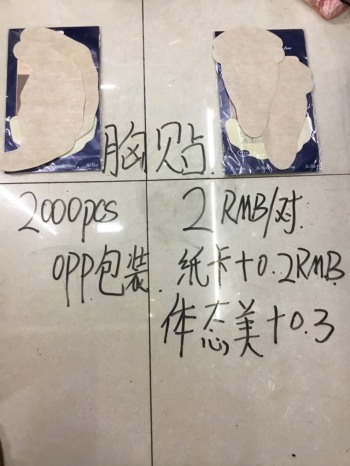 胸贴
2000pcs 2RMB/对
OPP包装. 纸卡+0.2RMB
体态美+0.3